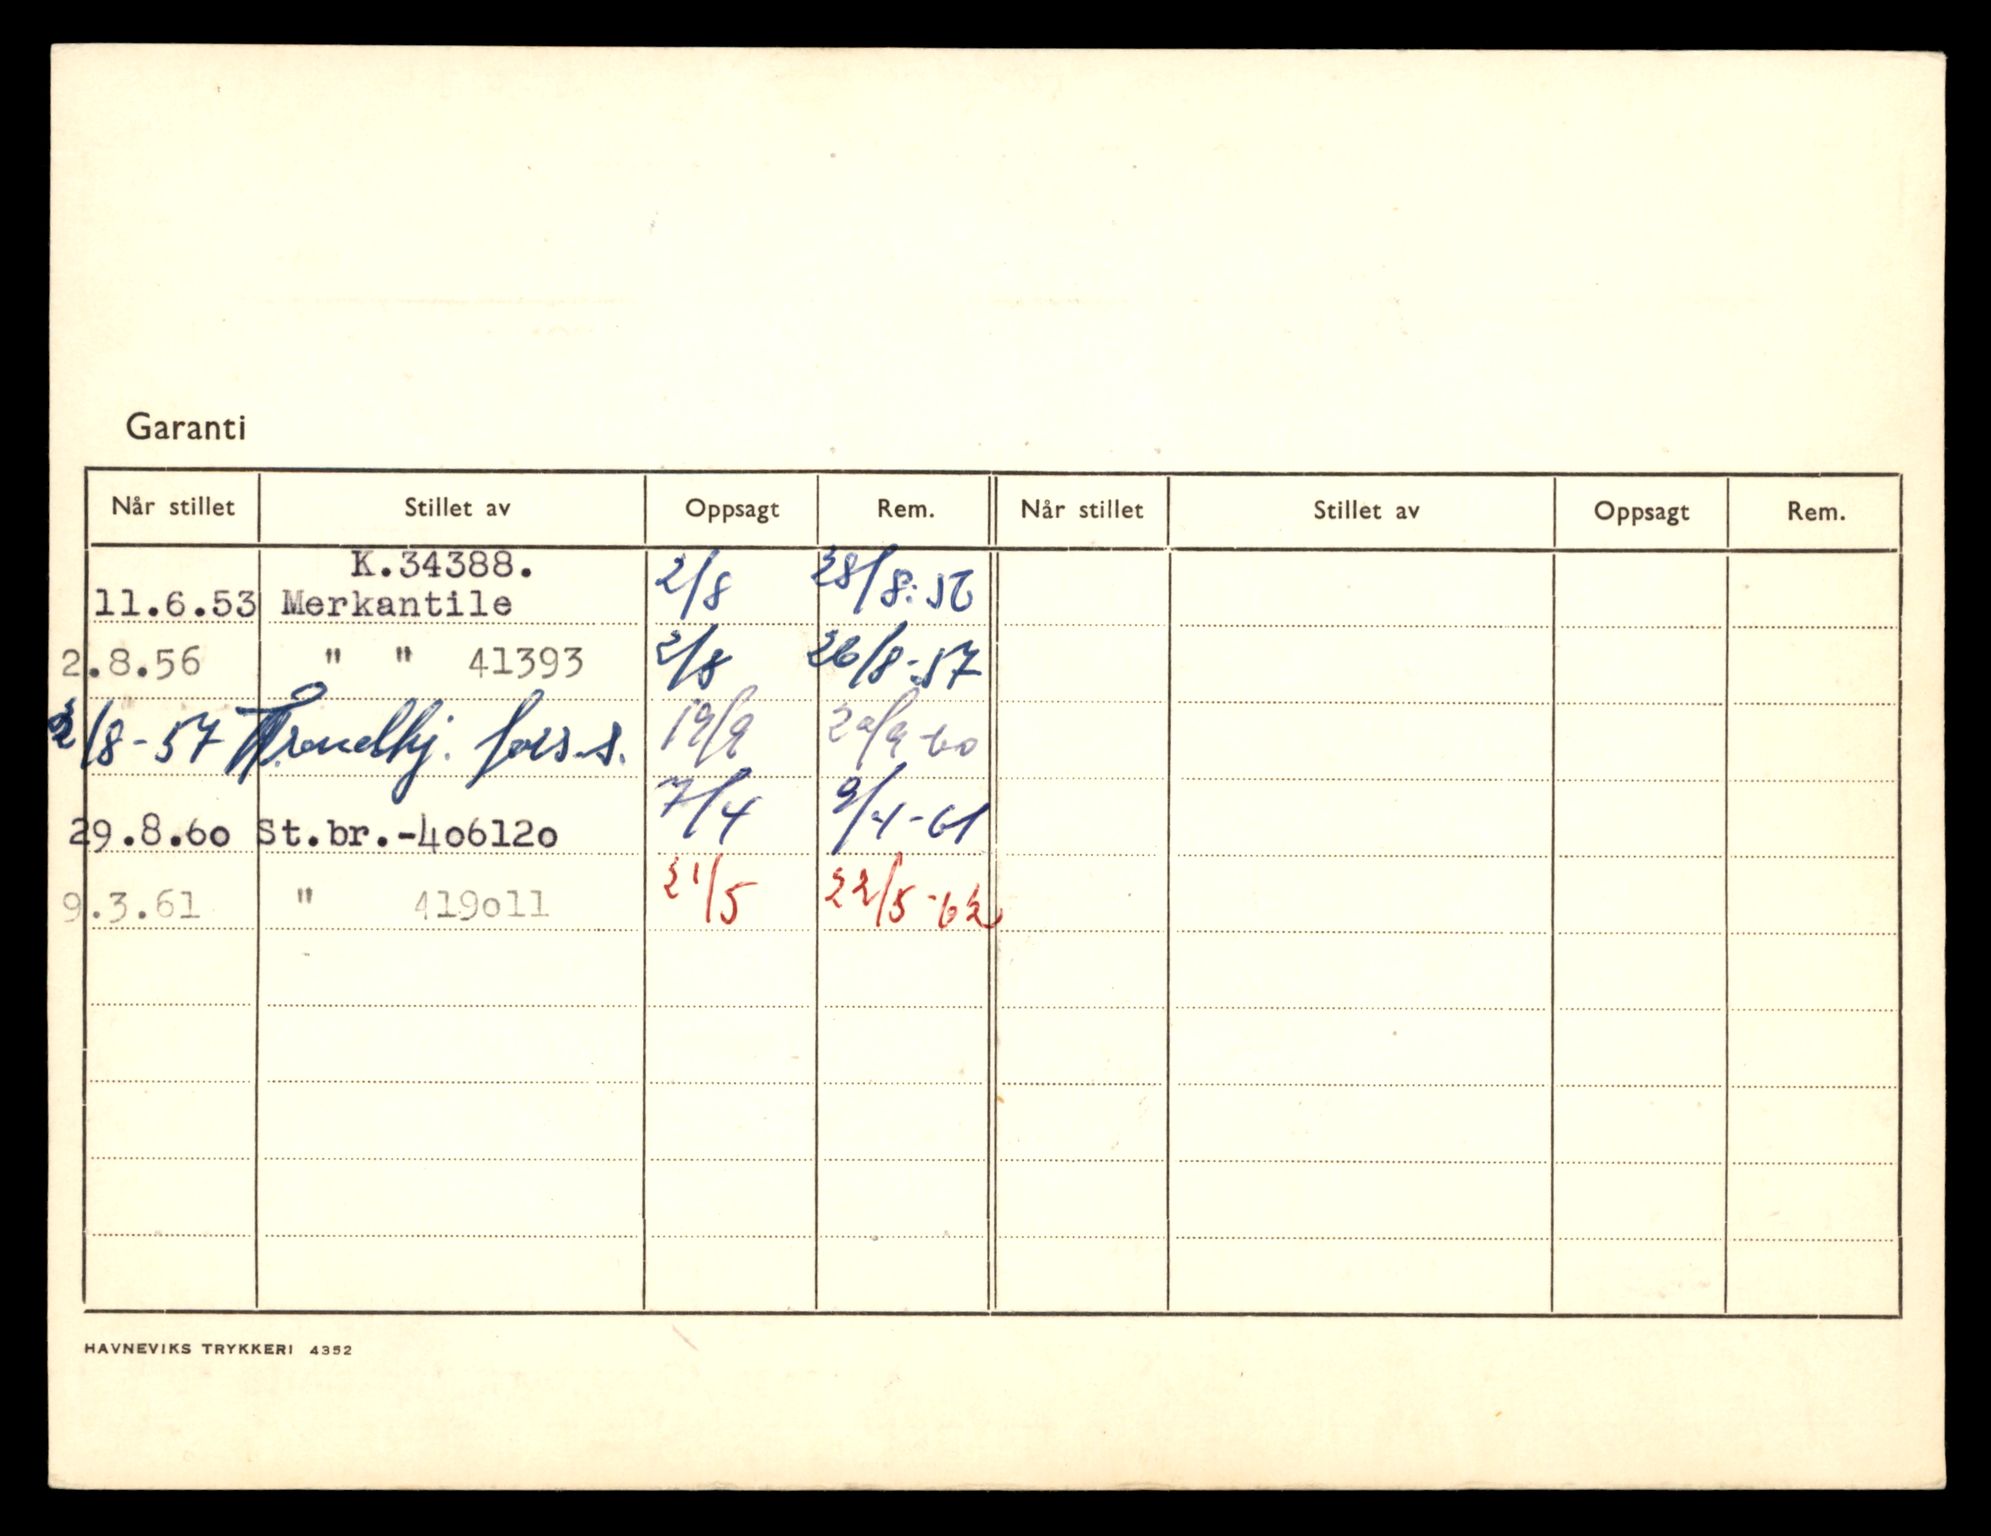 Garanti
Når stillet Stillet av Oppsagt Rem. Når stillet Stillet av Oppsagt Rem.
K.34388.
11.6.53 Merkantile 2/8 28/8.56
2.8.56 " " 41393 2/8 26/8-57
2/8-57 Trondhj. fors.s. 19/9 20/9-60
29.8.60 St.br.-406120 7/4 9/4-61
9.3.61 " 419011 21/5 22/5-62
HAVNEVIKS TRYKKERI 4352